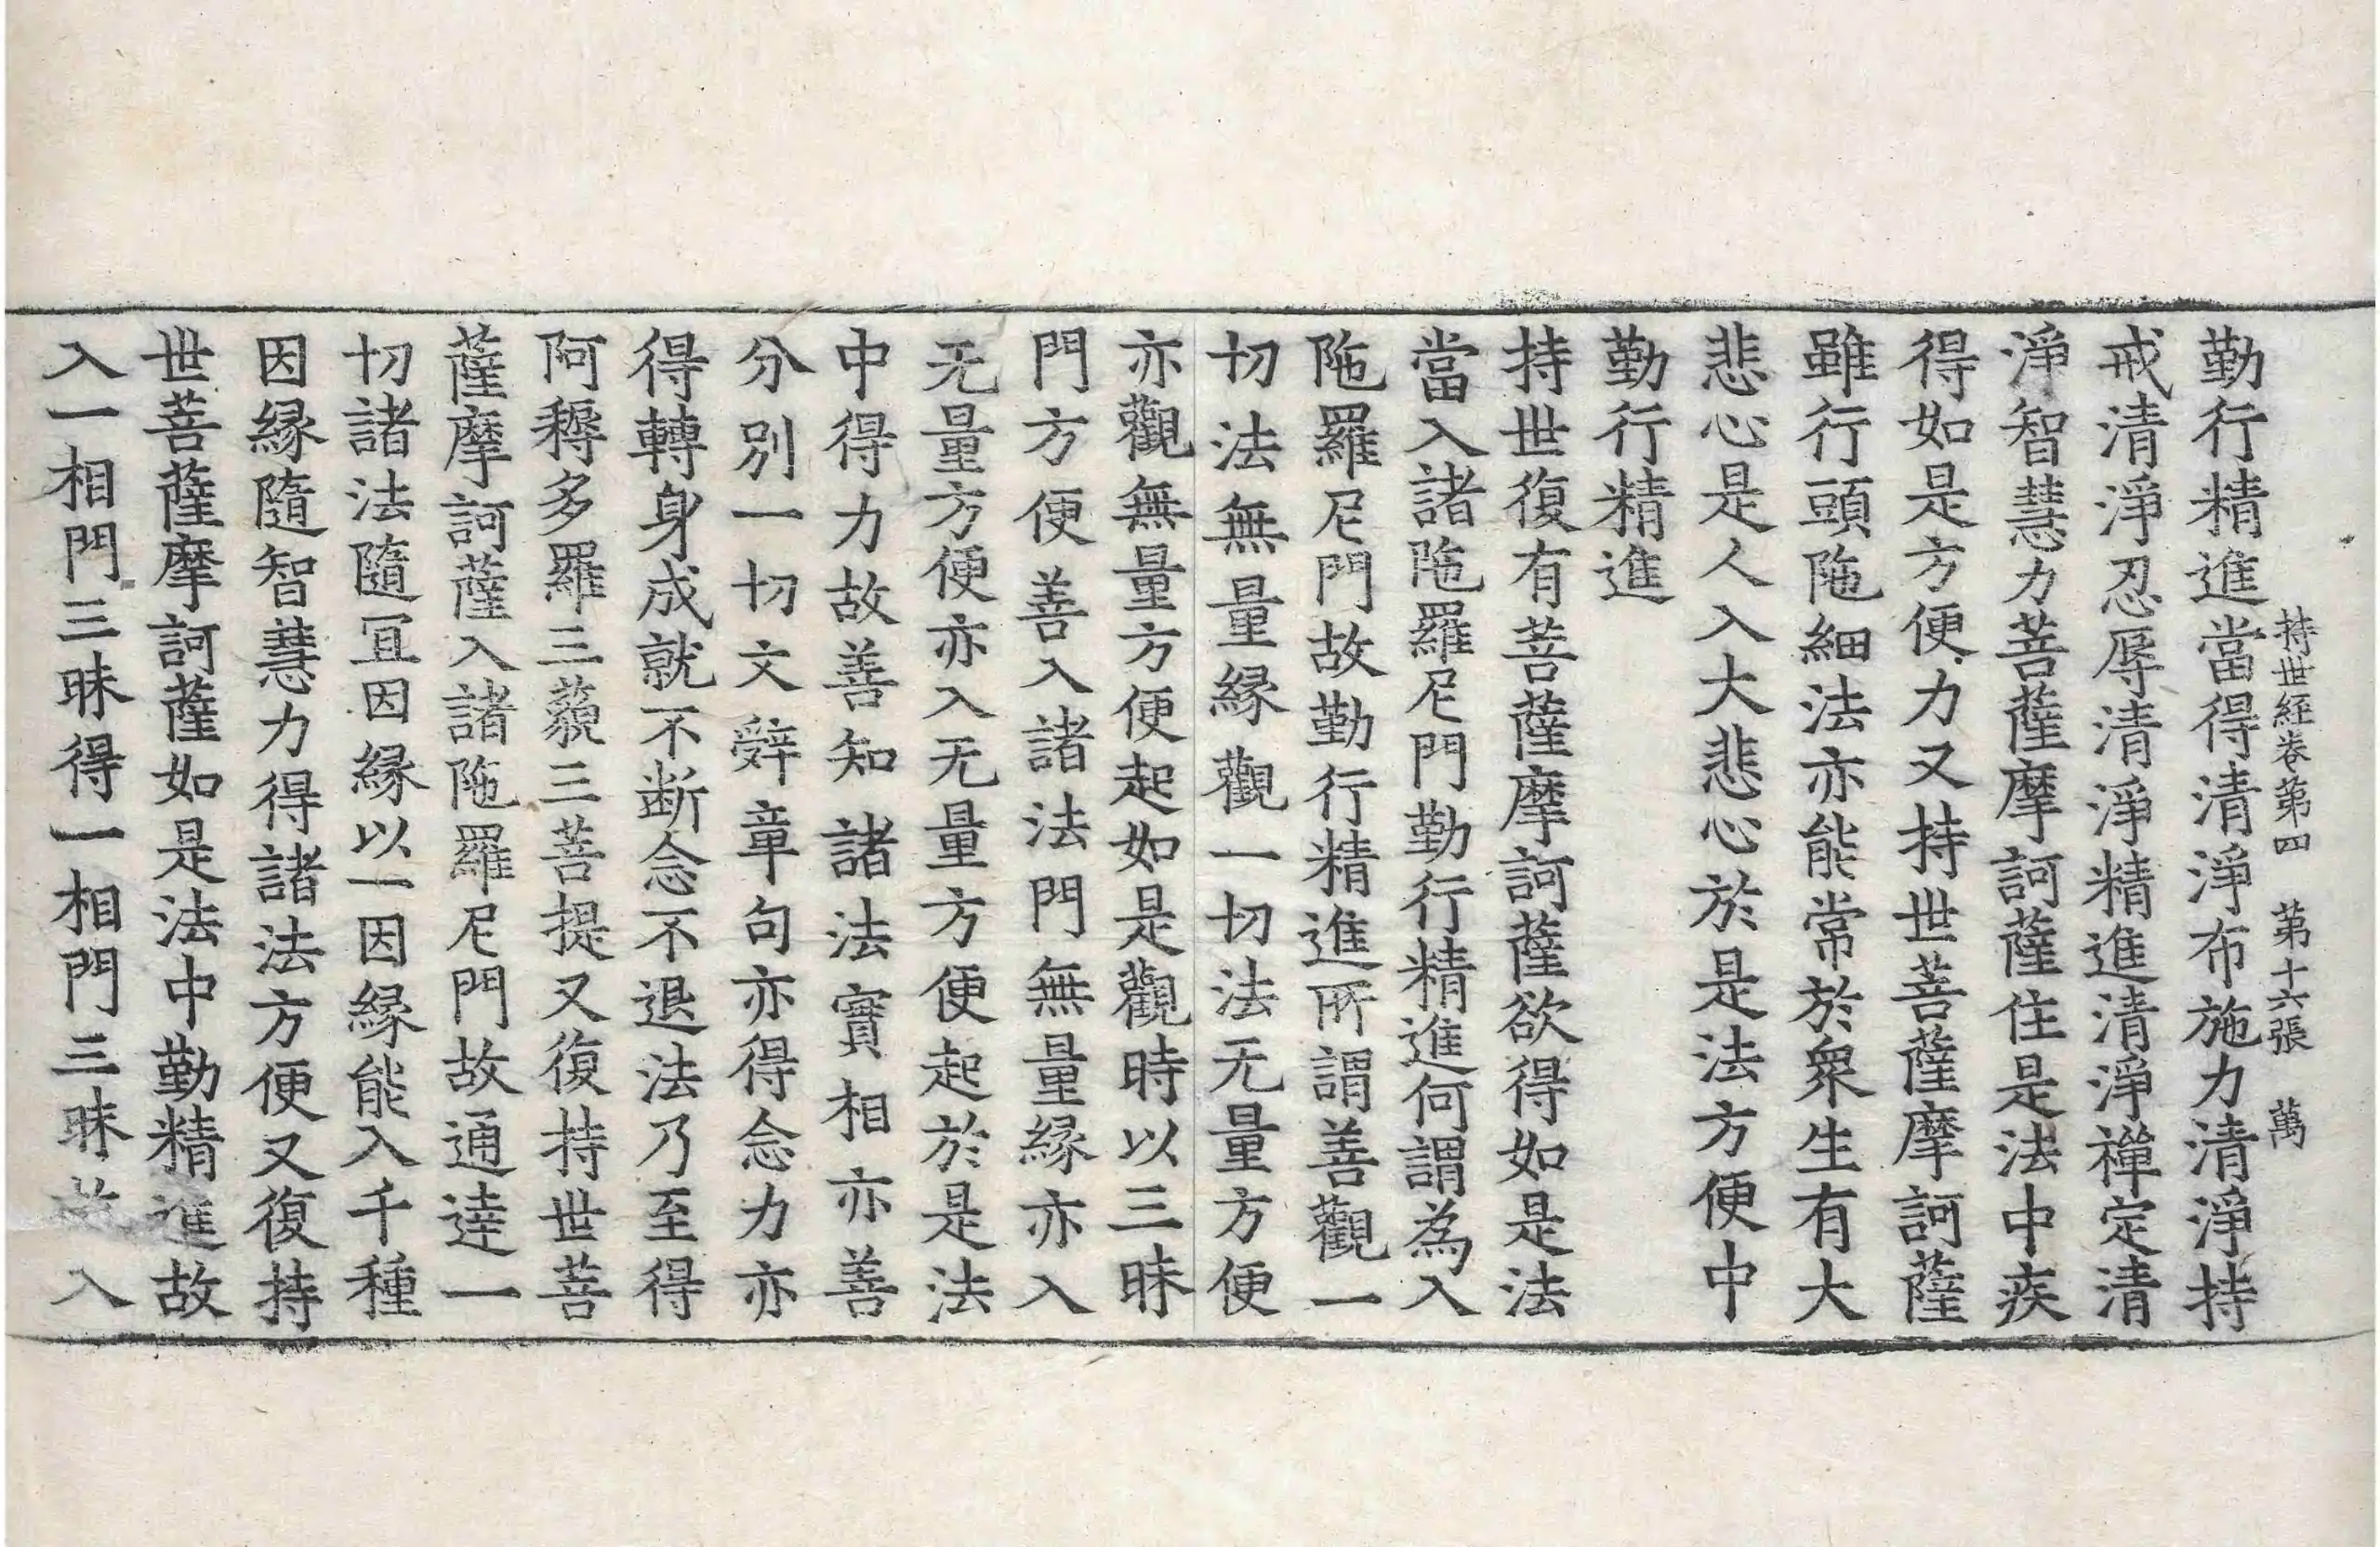 持世經卷第四　第十六張　萬
勤行精進當得清淨布施力清淨持
戒清淨忍辱清淨精進清淨禪定清
淨智慧力菩薩摩訶薩住是法中疾
得如是方便力又持世菩薩摩訶薩
雖行頭陁細法亦能常於衆生有大
悲心是人入大悲心於是法方便中
勤行精進
持世復有菩薩摩訶薩欲得如是法
當入諸陁羅尼門勤行精進何謂為入
陁羅尼門故勤行精進所謂善觀一
切法無量縁觀一切法无量方便
亦觀無量方便起如是觀時以三昧
門方便善入諸法門無量縁亦入
无量方便亦入无量方便起於是法
中得力故善知諸法實相亦善
分別一切文辤章句亦得念力亦
得轉身成就不断念不退法乃至得
阿耨多羅三藐三菩提又復持世菩
薩摩訶薩入諸陁羅尼門故通達一
切諸法隨冝因縁以一因縁能入千種
因縁隨智慧力得諸法方便又復持
世菩薩摩訶薩如是法中勤精進故
入一相門三昧得一相門三昧故入